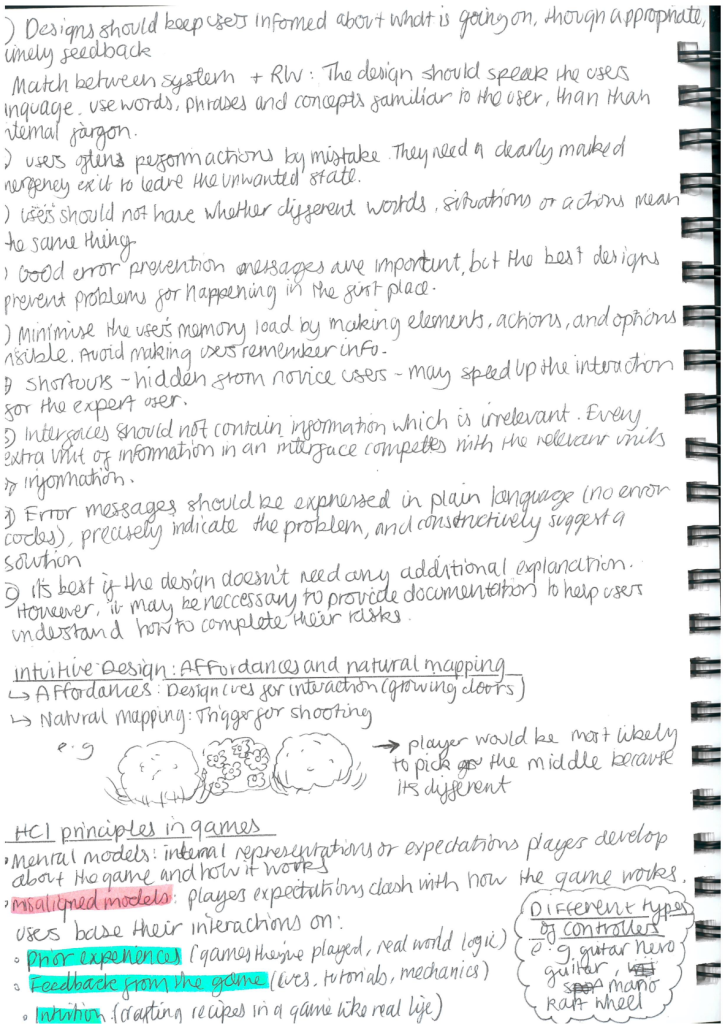 ) Designs should keep users informed about what is going on, though appropriate,
timely feedback
Match between system + RW: The design should speak the users
language. use words, phrases and concepts familiar to the user, than than
internal jargon.
) users oftens perform actions by mistake. They need a clearly marked
emergency exit to leave the unwanted state.
) users should not have whether different words, situations or actions mean
the same thing.
) Good error prevention messages are important, but the best designs
prevent problems for happening in the first place.
) Minimise the user's memory load by making elements, actions, and options
visible. Avoid making users remember info.
) Shortcuts - hidden from novice users - may speed up the interaction
for the expert user.
) Interfaces should not contain information which is irrelevant. Every
extra unit of information in an interface competes with the relevant units
of information.
) Error messages should be expressed in plain language (no error
codes), precisely indicate the problem, and constructively suggest a
solution
) its best if the design doesn't need any additional explanation.
However, it may be neccessary to provide documentation to help users
understand how to complete their risks.
Intuitive Design: Affordances and natural mapping
↳ Affordances: Design cues for interaction (glowing doors)
↳ Natural mapping: Trigger for shooting
e.g
→ player would be most likely
to pick the middle because
its different
HCI principles in games
• Mental models: internal representations or expectations players develop
about the game and how it works
• misaligned models: players expectations clash with how the game works.
users base their interactions on:
• Prior experiences (games they've played, real world logic)
• Feedback from the game (cues, tutorials, mechanics)
• Intuition (crafting recipes in a game like real life)
Different types
of controllers
e.g guitar hero
guitar,
mario
kart wheel